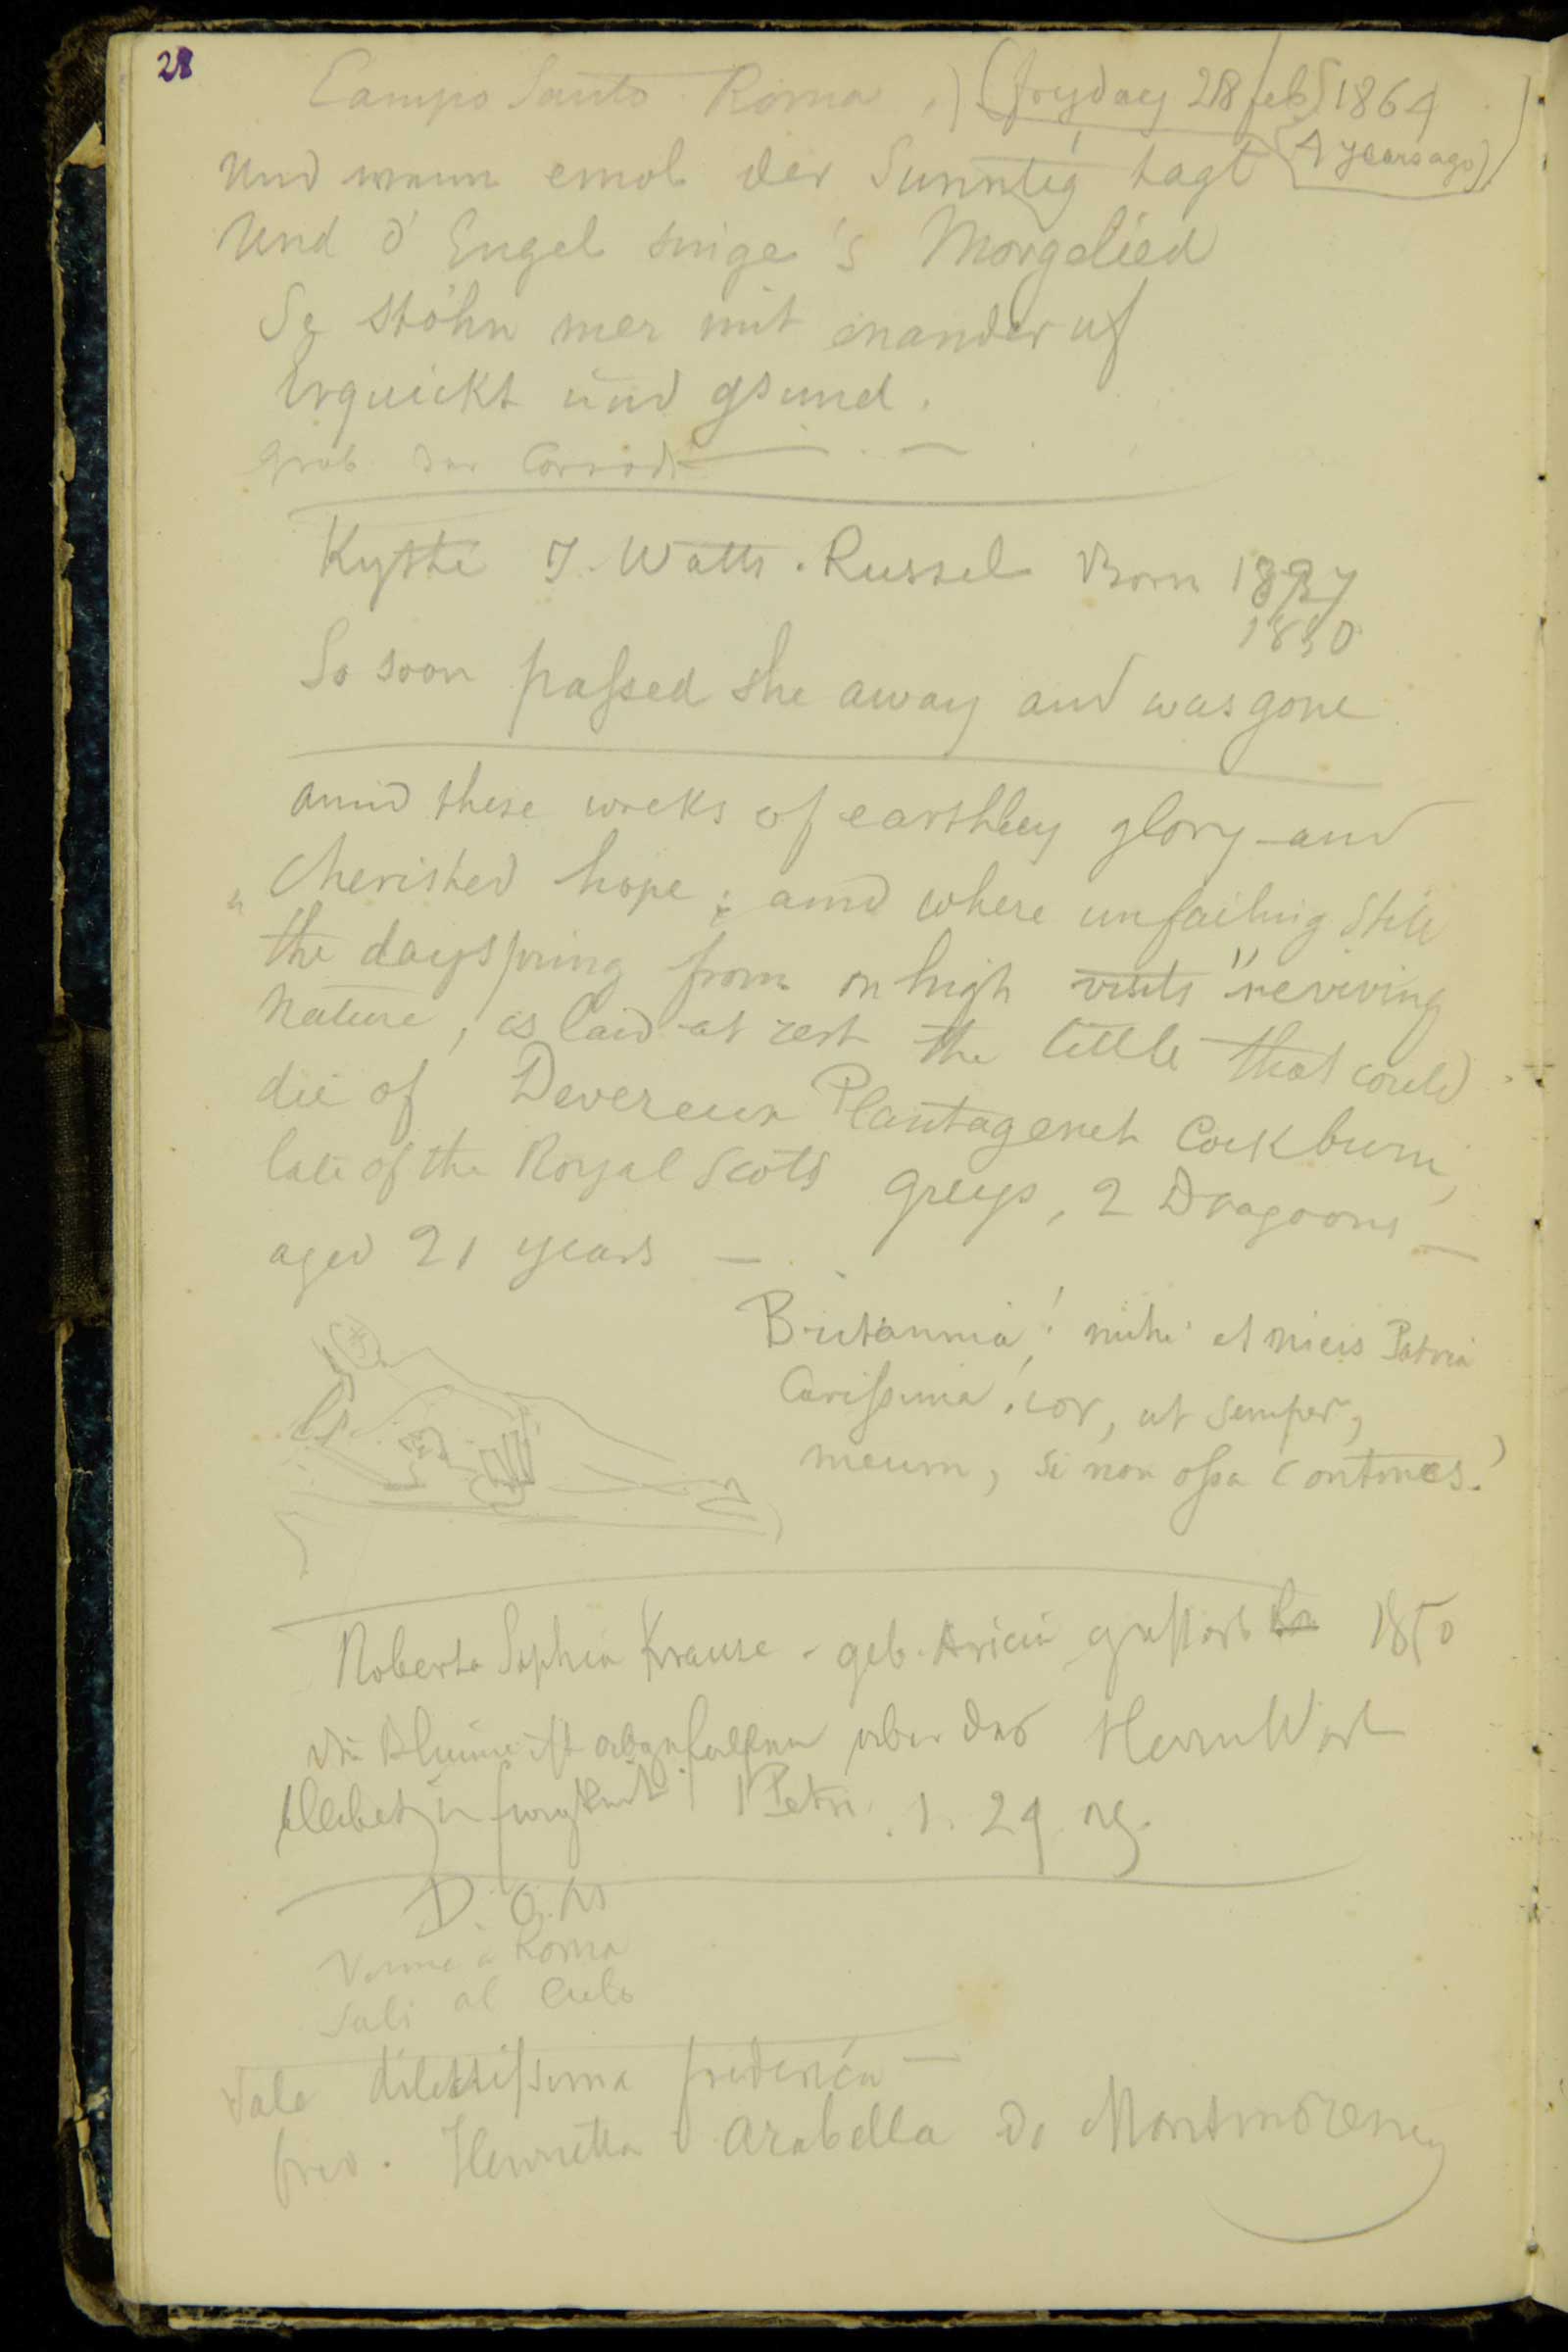 28
Campo Santo Roma . ) (fryday 28 feb 1864
(4 years ago)
Und wann emol der Sunntig tagt
Und d' Engel singe 's Morgelied
Se stöhn mer mit enander uf
Erquickt und gsund.
Grab der Corrodi
Kythe J. Watts. Russel Born 1837
1850
So soon paſsed she away and was gone
amid these wreks of earthley glory and
cherished hope; amid where unfailing still
the dayspring from on high visits "reviving
nature, is laid at rest the little that could
die of Devereux Plantagenet Cockburn,
late of the Royal Scots Greys, 2 Dragoons —
aged 21 years —
Britannia! mihi et meis Patria
Cariſsima! cor, ut semper,
meum, si non oſsa contines!
Roberta Sophia Krause - geb. Aricia gestorb 1850
die Blume ist abgefallen aber des Herrn Wort
bleibet in Ewigkeit 1 Petri. 1. 24. 25.
D. O. M
Venne a Roma
Sali al Cielo
Vale dilettiſsima frederica —
fred. Henrietta Arabella de Montmorency